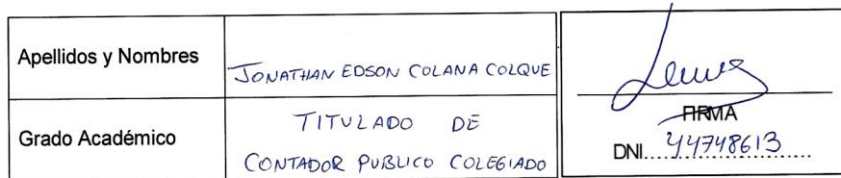 Apellidos y Nombres
JONATHAN EDSON COLANA COLQUE
Grado Académico
TITULADO DE
CONTADOR PUBLICO COLEGIADO
FIRMA
DNI 44748613